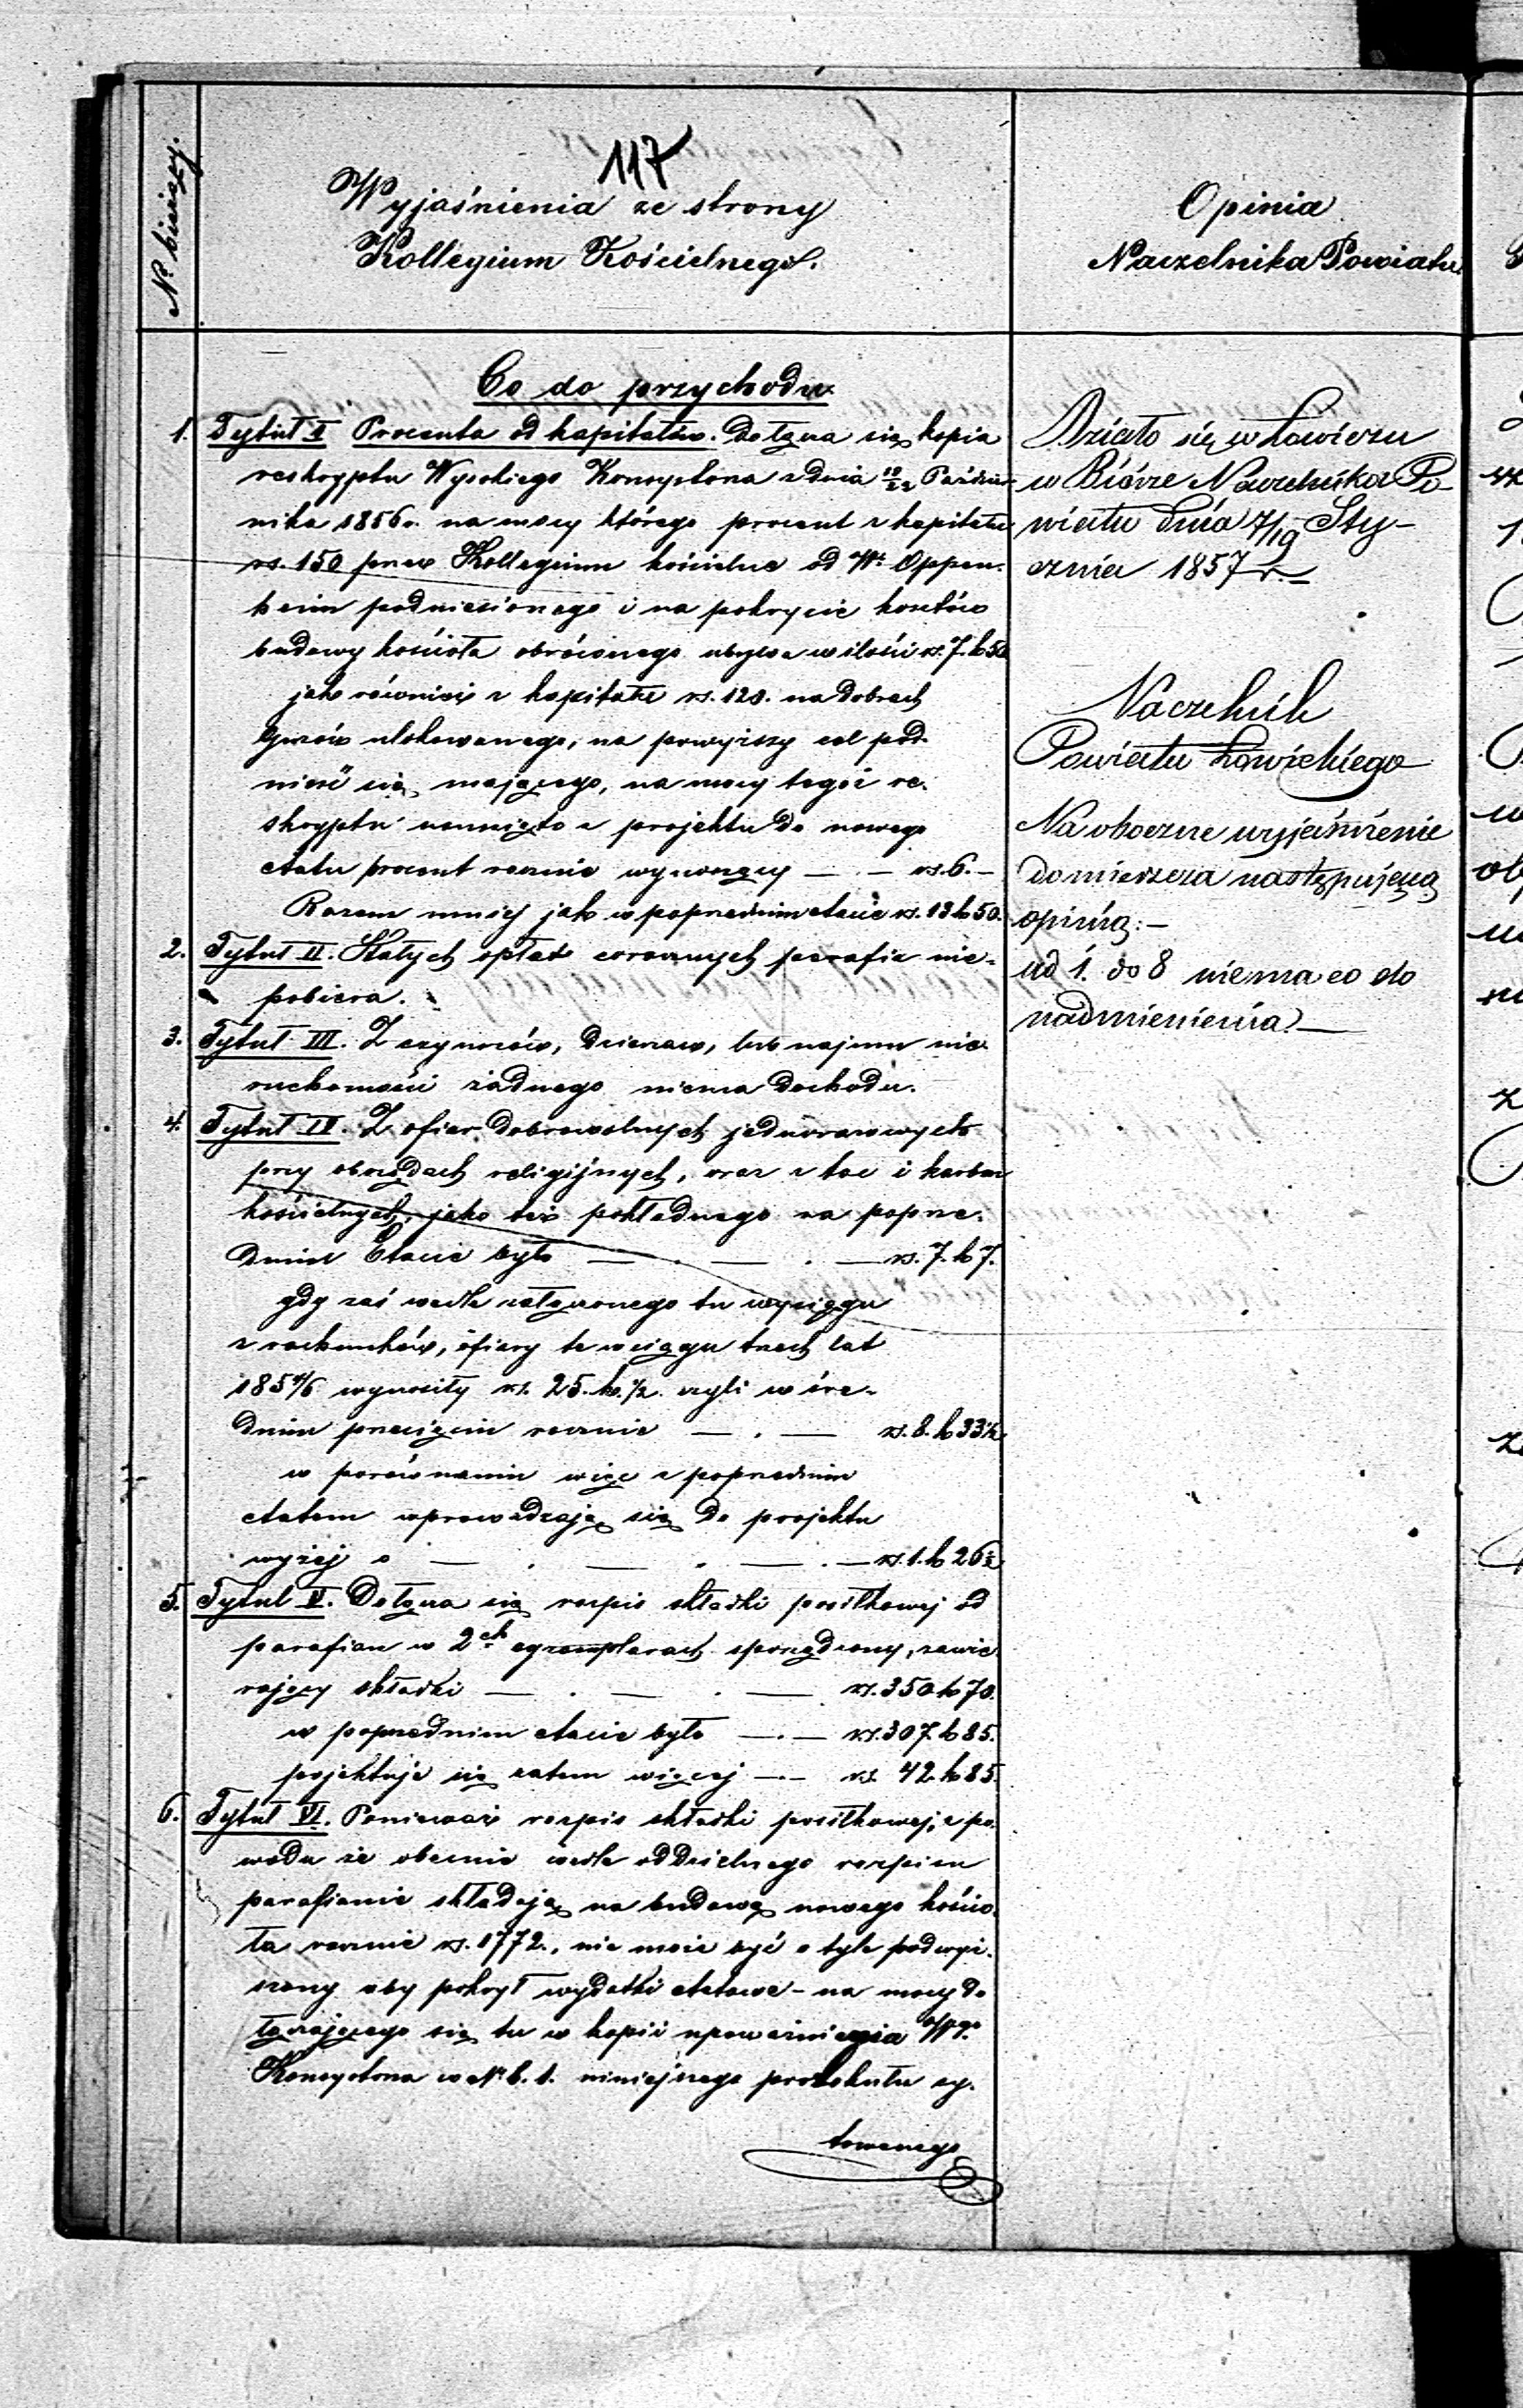 117
No bieżący.
Wyjaśnienia ze strony
Kollegium Kościelnego.
Opinia
Naczelnika Powiatu
Co do przychodu
1. Tytuł I Procenta od kapitałów. Dołącza się kopia
reskryptu Wysokiego Konsystorza z dnia 10/22 Paździer-
nika 1856 r. na mocy którego procent z kapitału
rs. 150 przez Kollegium kościelne od Oppen-
heim podniesionego i na pokrycie kosztów
budowy kościoła obróconego ubywa w ilości rs. 7. k 50
jak również z kapitału rs. 120. na dobrach
ulokowanego, na powyższy cel pod-
nieść się mającego, na mocy tegoż re-
skryptu usunięto z projektu do nowego
etatu procent rocznie wynoszący — . — rs. 6. —
Razem mniej jak w poprzednim etacie rs. 13 k 50.
2. Tytuł II. Stałych opłat corocznych parafia nie-
pobiera.
3. Tytuł III. Z czynszów, dzierżaw, lub najmu nie-
ruchomości żadnego niema dochodu.
4. Tytuł IV. Z ofiar dobrowolnych jednorazowych
przy obrzędach religijnych, oraz z tac i karbon
kościelnych, jako też pokładnego na poprze-
dnim Etacie było — . — . — rs. 7. k 7.
gdy zaś wedle załączonego tu wyciągu
z rachunków, ofiary te w ciągu trzech lat
1854/6 wynosiły rs. 25. k. 1/2. czyli w śre-
dnim przecięciu rocznie — . — rs. 8. k 33 1/2
w porównaniu więc z poprzednim
etatem wprowadzają się do projektu
wyżej o — . — . — . — rs. 1. k 26 1/2
5. Tytuł V. Dołącza się rozpis składki posiłkowej od
parafian w 2ch egzemplarach sporządzony, zawie-
rający składki — . — . — rs. 350 k 70.
w poprzednim etacie było — . — rs. 307. k 85.
projektuje się zatem więcej — . — rs. 42. k 85.
6. Tytuł VI. Ponieważ rozpis składki posiłkowej, z po-
wodu że obecnie wedle oddzielnego rozpisu
parafianie składają na budowę nowego kościo-
ła rocznie rs. 1772., nie może być o tyle podwyż-
szony aby pokrył wydatki etatowe – na mocy do
łączającego się tu w kopii upoważnienia
Konsystorza w No b. 1. niniejszego protokułu cy-
towanego
Działo się w Łowiczu
w Biórze Naczelnika Po-
wiatu dnia 7/19 Sty-
cznia 1857 r. —
Naczelnik
Powiatu Łowickiego
Na oboczne wyjaśnienie
domieszcza następującą
opinią: —
od 1. do 8 niema co do
nadmienienia. —